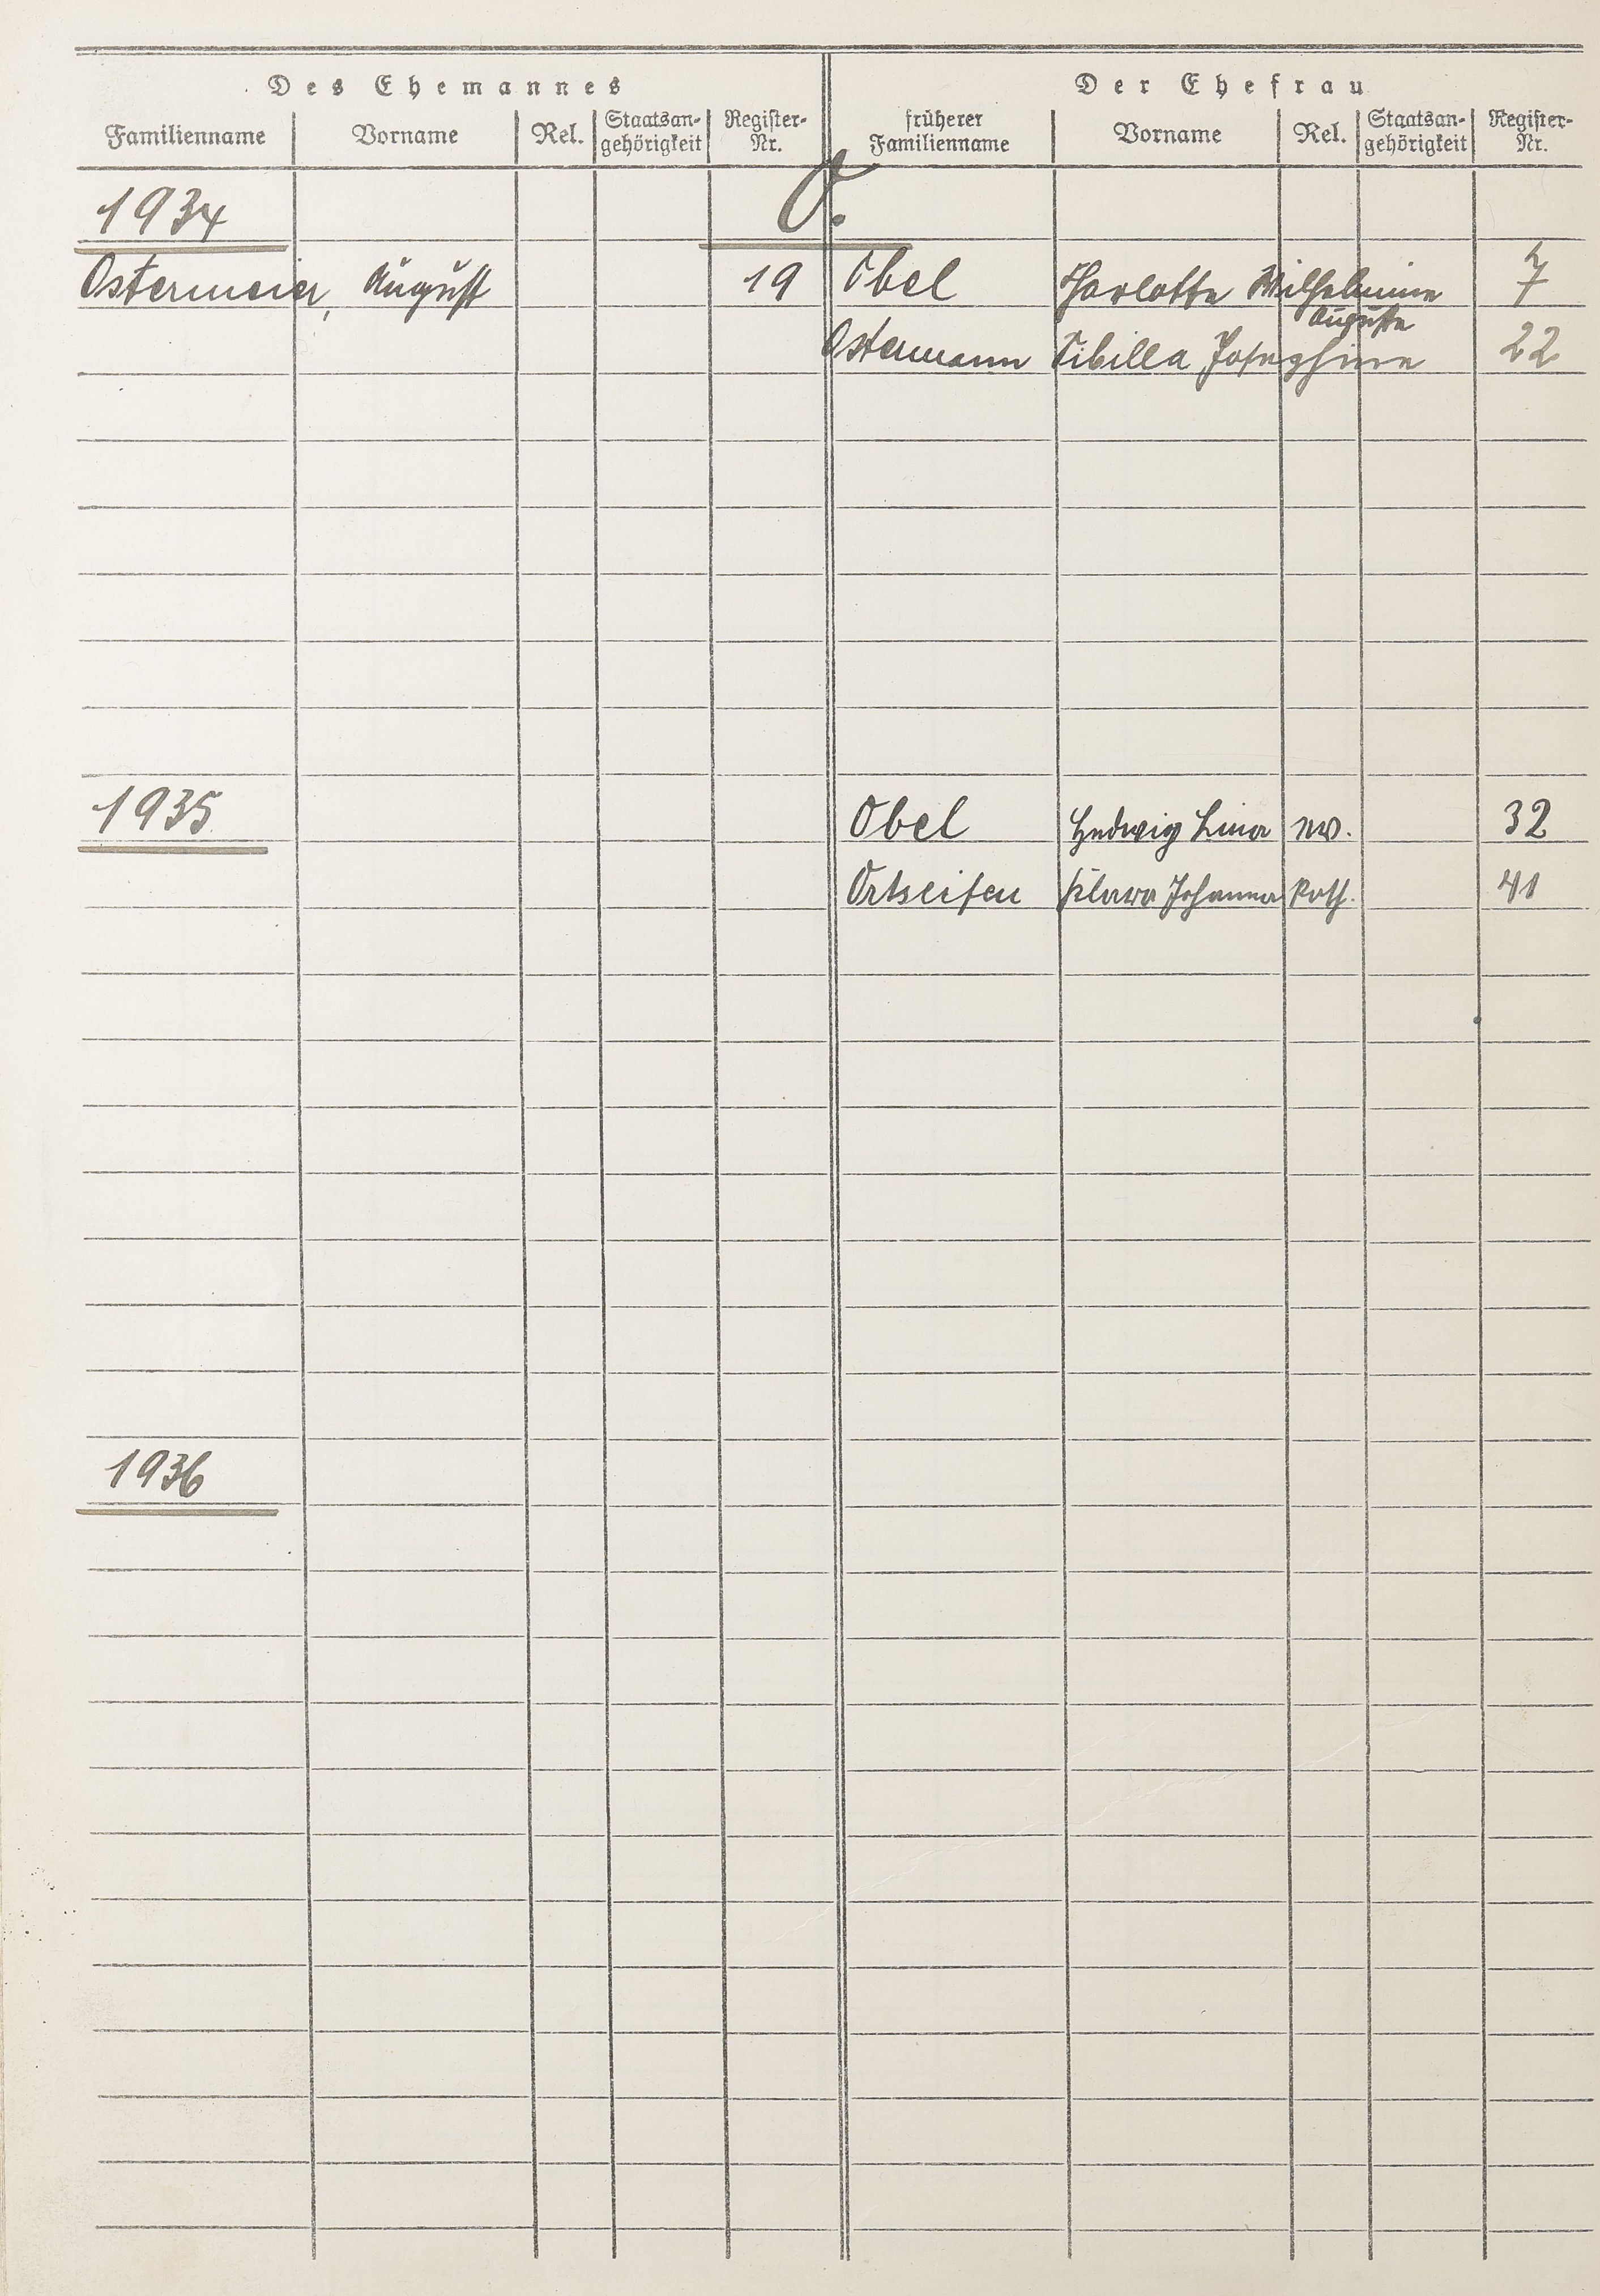 Des Ehemannes Der Ehefrau
Familienname Vorname Rel. Staatsan-gehörigkeit Register-Nr. früherer Familienname Vorname Rel. Staatsan-gehörigkeit Register-Nr.
1934 O.
Ostermeier, August 19 Obel Charlotte Wilhelmine 7
Auguste
Ostermann Sibilla Josephine 22
1935 Obel Hedwig Lina ev. 32
Ortseifen Klara Johanna kath. 41
1936